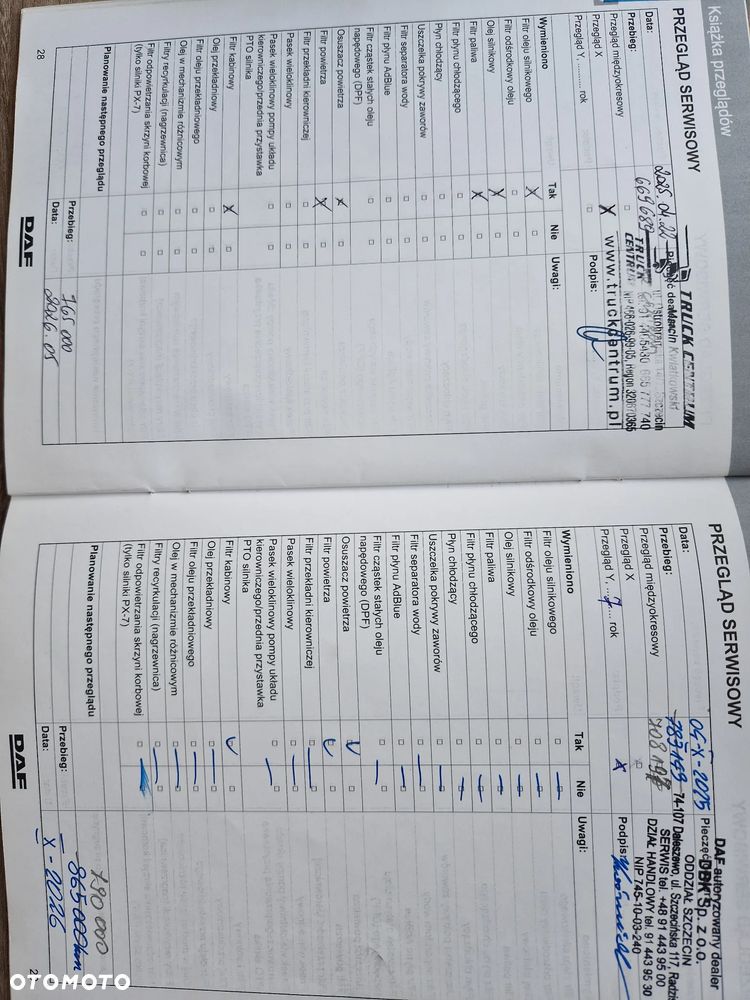 Książka przeglądów
PRZEGLĄD SERWISOWY
Data:
2025.04.22
Przebieg:
669 689
Przegląd międzyokresowy
Przegląd X
X
Przegląd Y .......... rok
TRUCK CENTRUM
Marcin Kwiatkowski
TRUCK
CENTRUM
www.truckcentrum.pl
Podpis:
Wymieniono
Tak
Nie
Uwagi:
Filtr oleju silnikowego
X
Filtr odśrodkowy oleju
Olej silnikowy
X
Filtr paliwa
X
Filtr płynu chłodzącego
Płyn chłodzący
Uszczelka pokrywy zaworów
Filtr separatora wody
Filtr płynu AdBlue
Filtr cząstek stałych oleju
napędowego (DPF)
Osuszacz powietrza
X
Filtr powietrza
X
Filtr przekładni kierowniczej
Pasek wieloklinowy
Pasek wieloklinowy pompy układu
kierowniczego/przednia przystawka
PTO silnika
Filtr kabinowy
X
Olej przekładniowy
Filtr oleju przekładniowego
Olej w mechanizmie różnicowym
Filtry recyrkulacji (nagrzewnica)
Filtr odpowietrzania skrzyni korbowej
(tylko silniki PX-7)
Planowanie następnego przeglądu
Przebieg:
765 000
Data:
2026.05
28
DAF
PRZEGLĄD SERWISOWY
Data:
04-X-2025
Przebieg:
Przegląd międzyokresowy
Przegląd X
X
Przegląd Y ....7.... rok
DAF autoryzowany dealer
DBK Sp. z o.o.
ODDZIAŁ SZCZECIN
74-107 Daleszewo, ul. Szczecińska 117, Radzi
SERWIS tel. +48 91 443 95 00
DZIAŁ HANDLOWY tel. 91 443 95 30
NIP 745-10-03-240
Podpis:
Wymieniono
Tak
Nie
Uwagi:
Filtr oleju silnikowego
Filtr odśrodkowy oleju
Olej silnikowy
Filtr paliwa
Filtr płynu chłodzącego
Płyn chłodzący
Uszczelka pokrywy zaworów
Filtr separatora wody
Filtr płynu AdBlue
Filtr cząstek stałych oleju
napędowego (DPF)
Osuszacz powietrza
Filtr powietrza
Filtr przekładni kierowniczej
Pasek wieloklinowy
Pasek wieloklinowy pompy układu
kierowniczego/przednia przystawka
PTO silnika
Filtr kabinowy
Olej przekładniowy
Filtr oleju przekładniowego
Olej w mechanizmie różnicowym
Filtry recyrkulacji (nagrzewnica)
Filtr odpowietrzania skrzyni korbowej
(tylko silniki PX-7)
Planowanie następnego przeglądu
790 000
Przebieg:
865 000 km
Data:
X - 2026
DAF
OTOMOTO